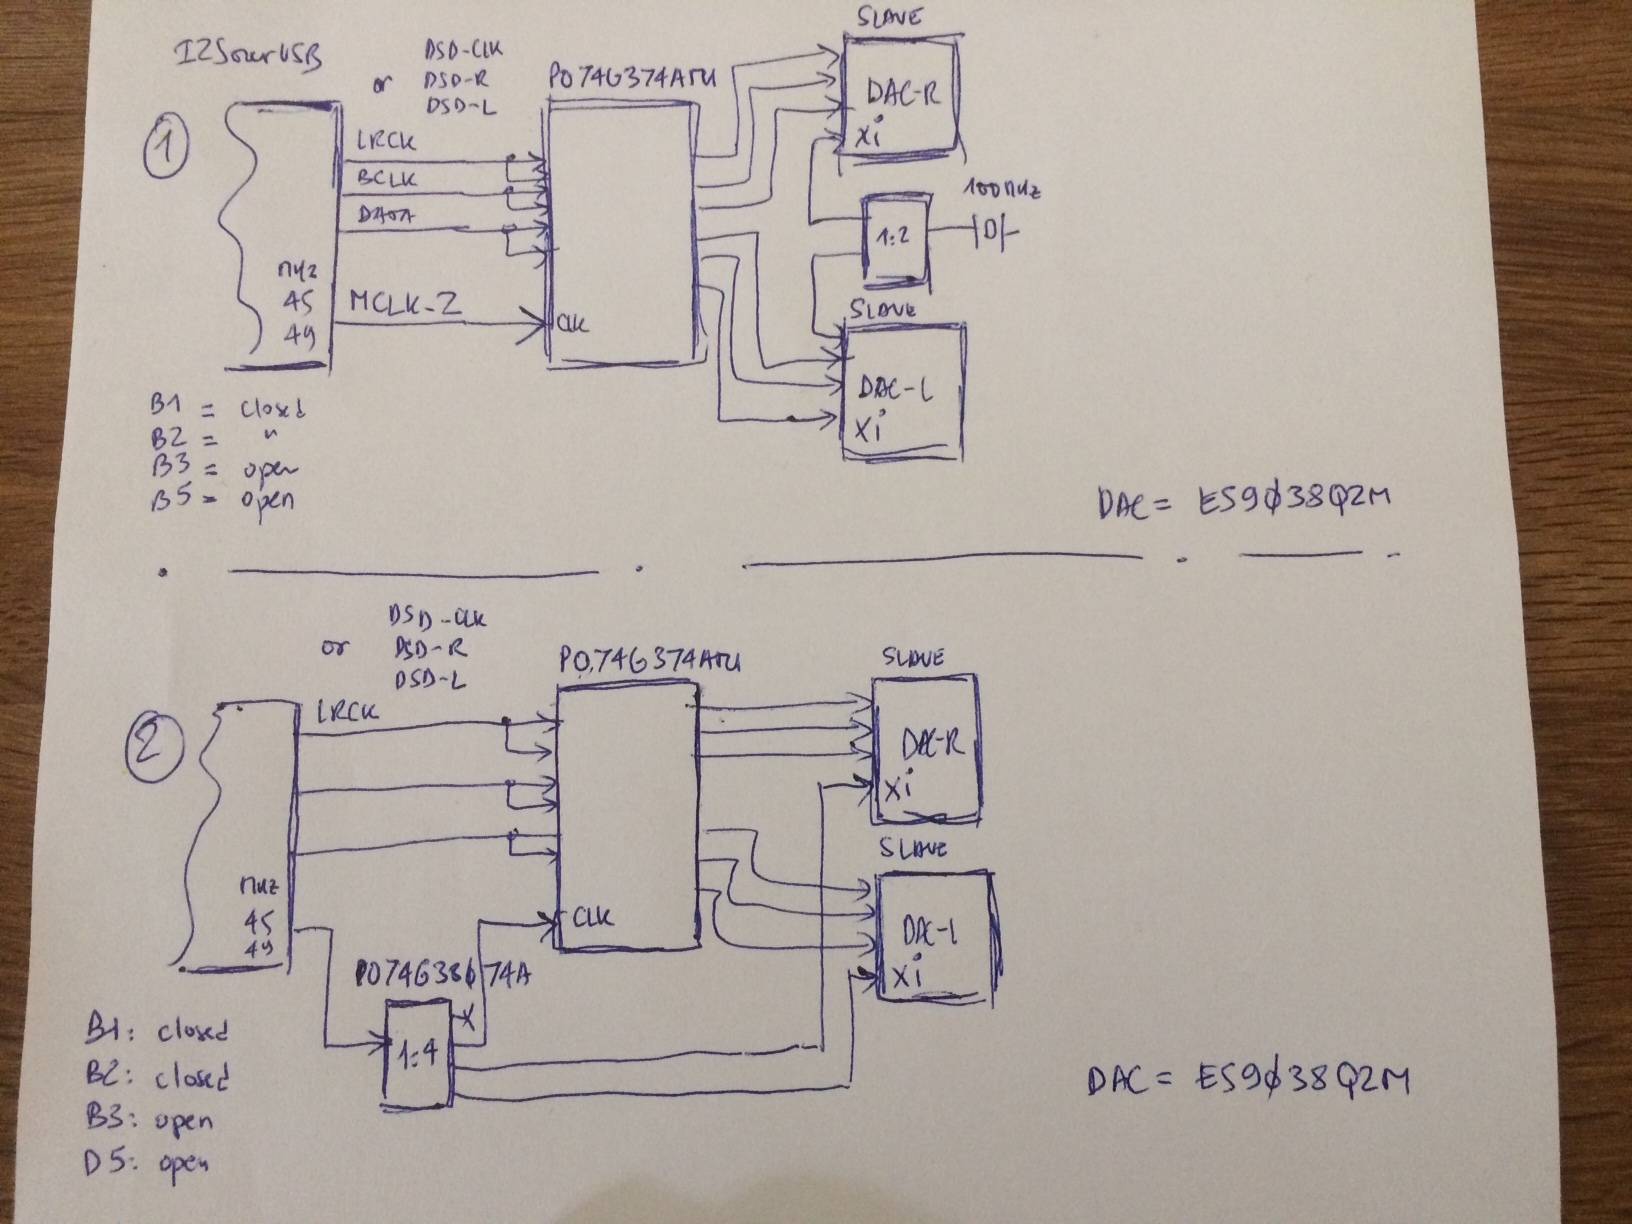 I2SoverUSB
or DSD-CLK
DSD-R
DSD-L
PO74G374ATU
SLAVE
DAC-R
Xi
1
LRCK
BCLK
DATA
100MHz
1:2
MHz
45
49
MCLK-2
CLK
SLAVE
DAC-L
Xi
B1 = closed
B2 = "
B3 = open
B5 = open
DAC = ES9φ38Q2M
DSD-CLK
or DSD-R
DSD-L
PO74G374ATU
SLAVE
2
LRCK
DAC-R
Xi
SLAVE
MHz
45
49
CLK
DAC-L
Xi
X
1:4
B1: closed
B2: closed
B3: open
D5: open
DAC = ES9φ38Q2M